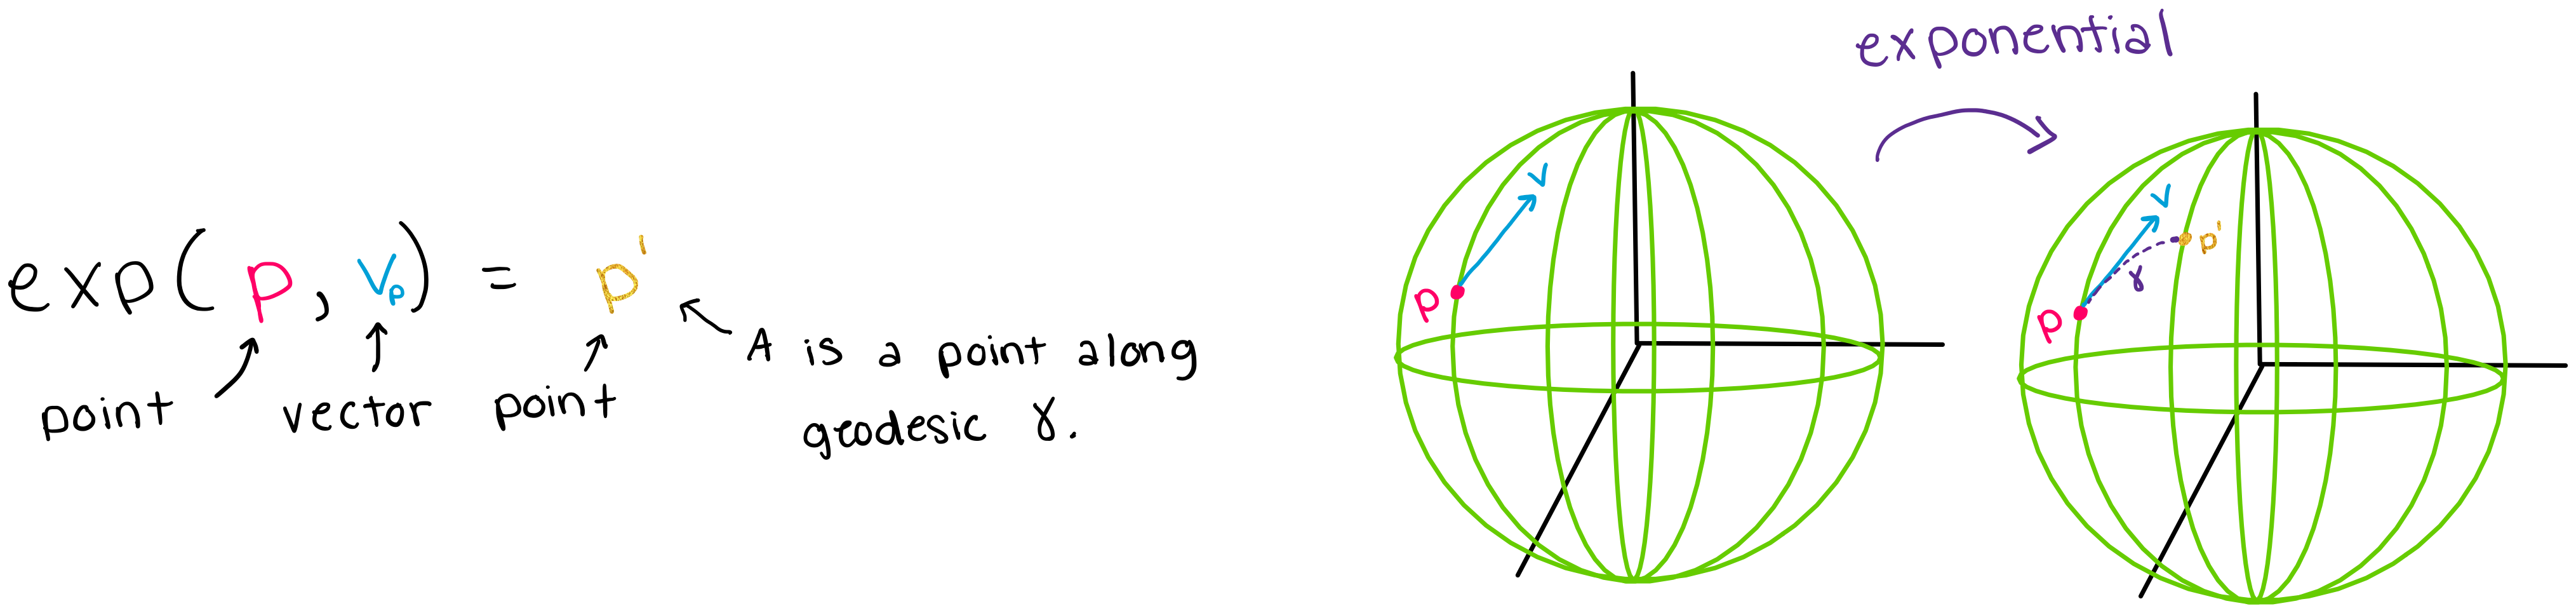 exp(p, vₚ) = p'
point
vector
point
A is a point along
geodesic γ.
exponential
v
p
v
p'
γ
p